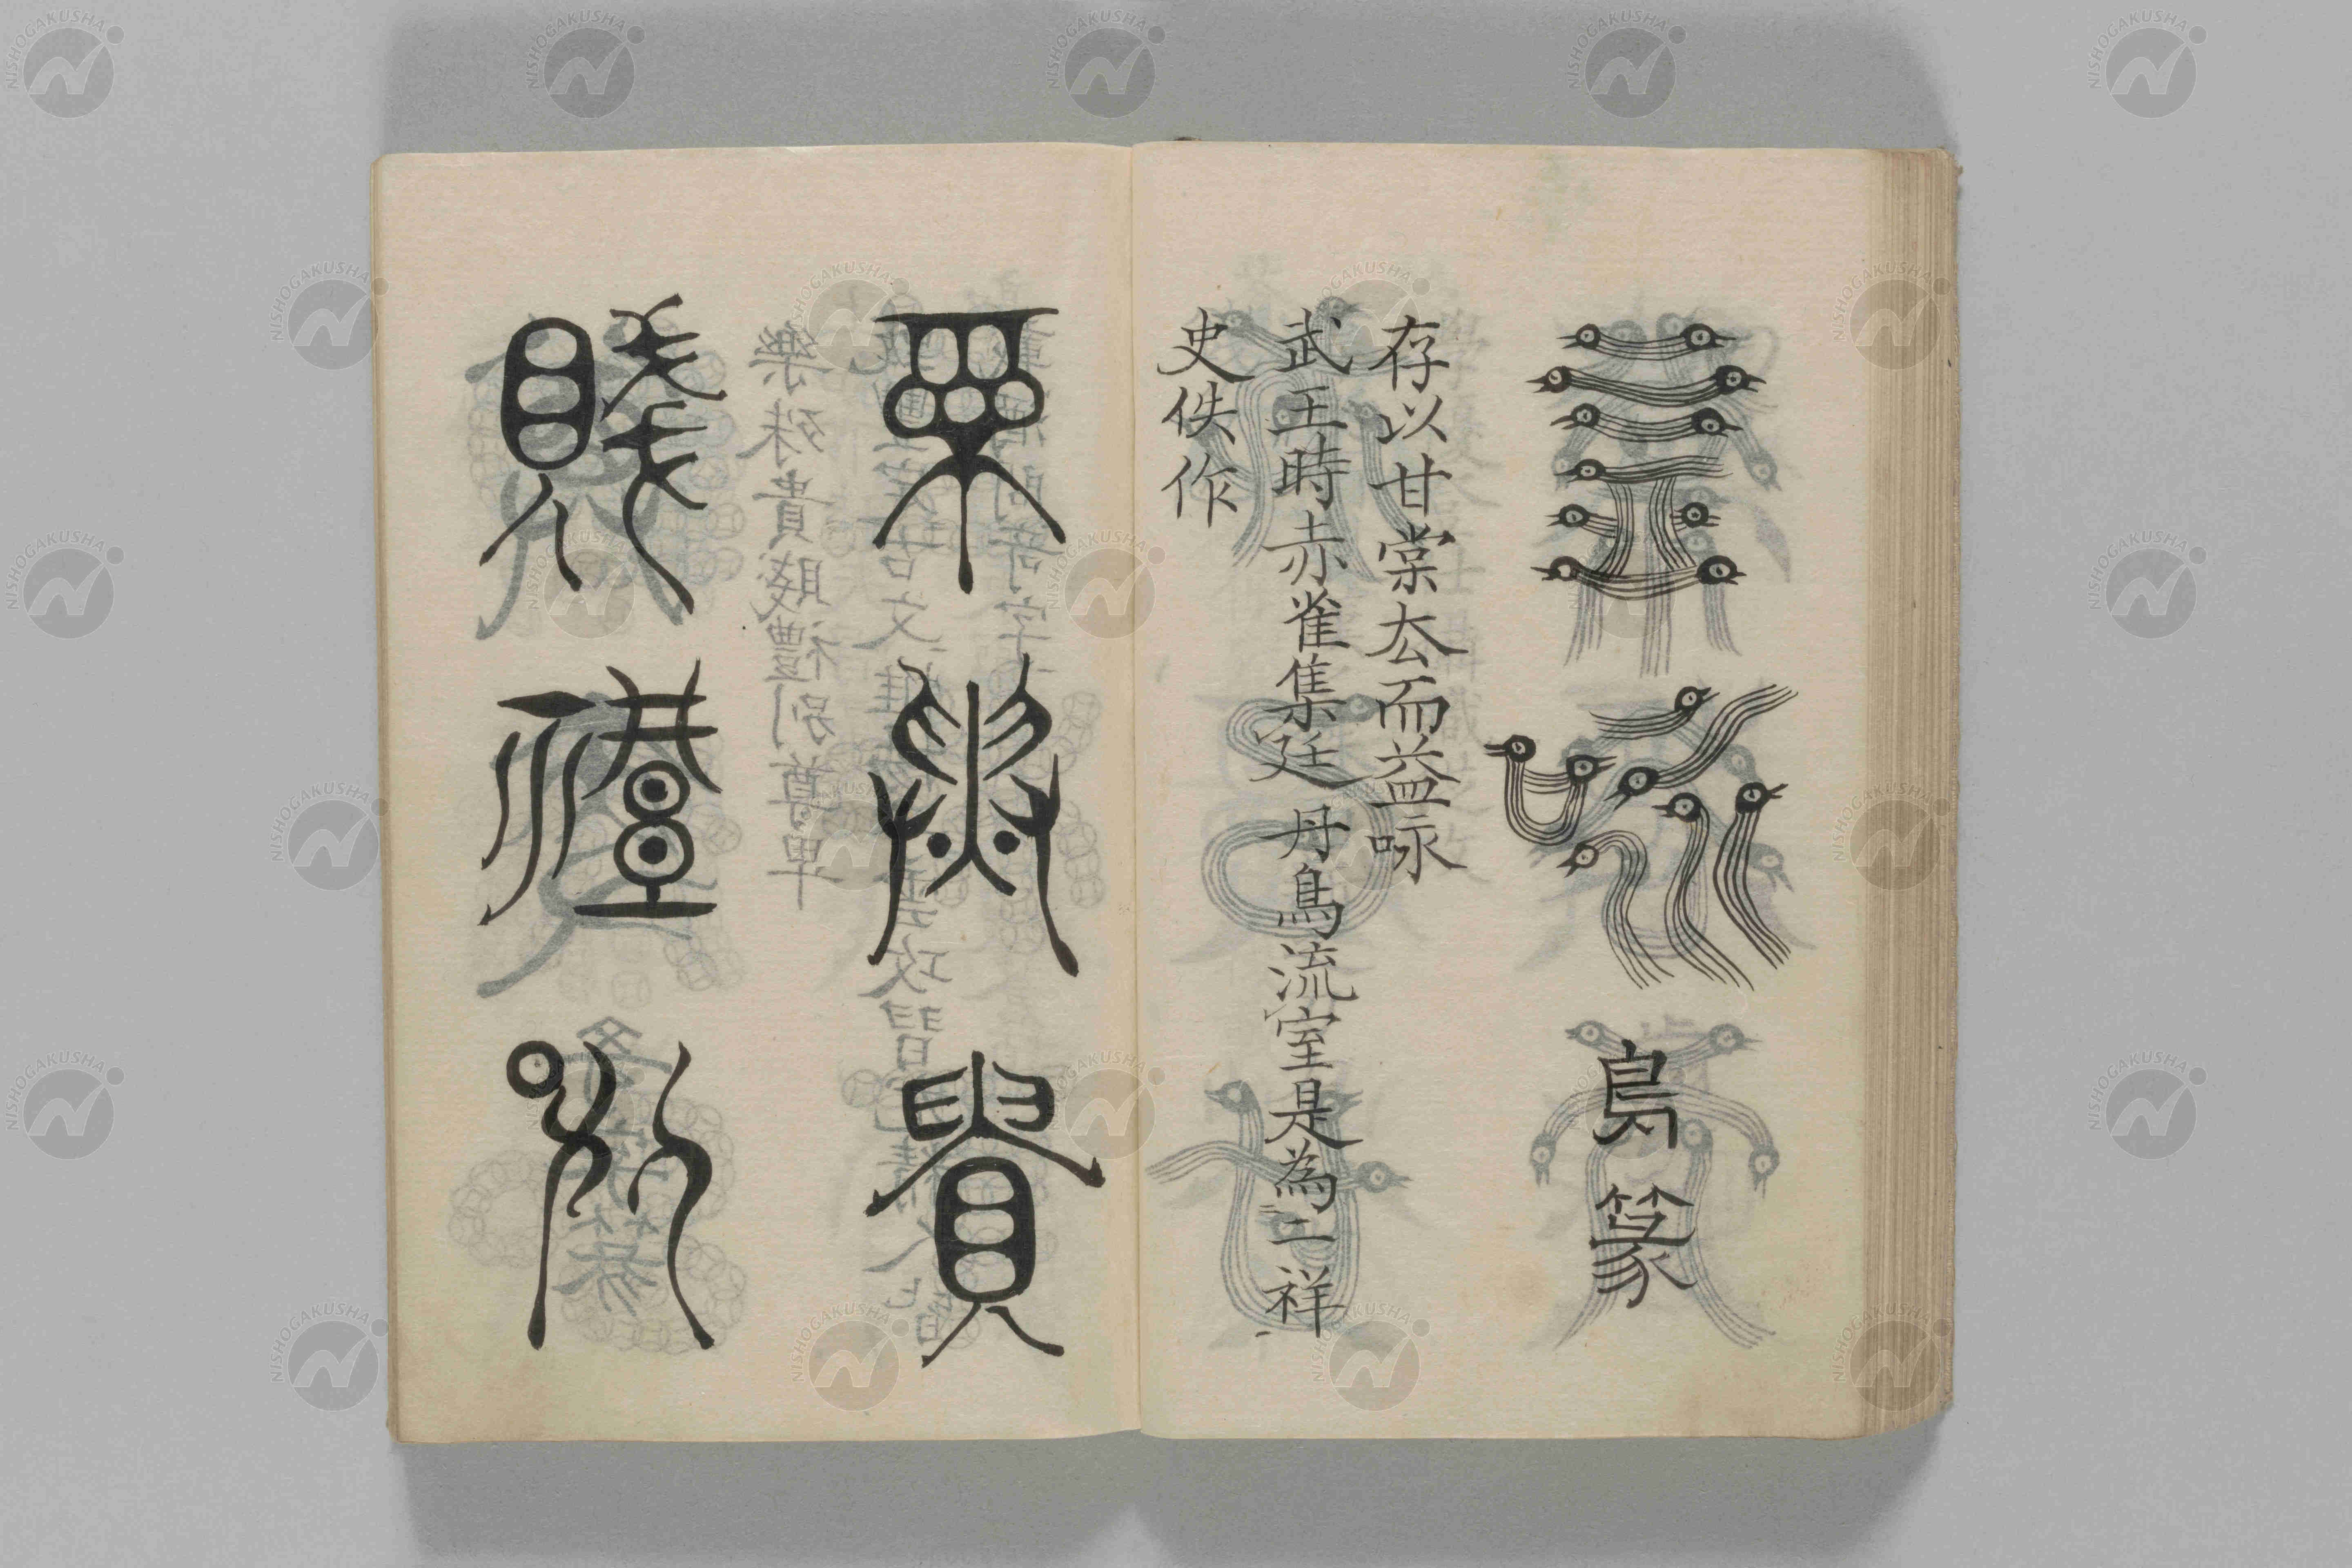 益咏鳥篆
存以甘棠厺而益咏
武王時赤雀集廷丹鳥流室是為二祥
史佚作
樂殊貴
賤禮別
NISHOGAKUSHA